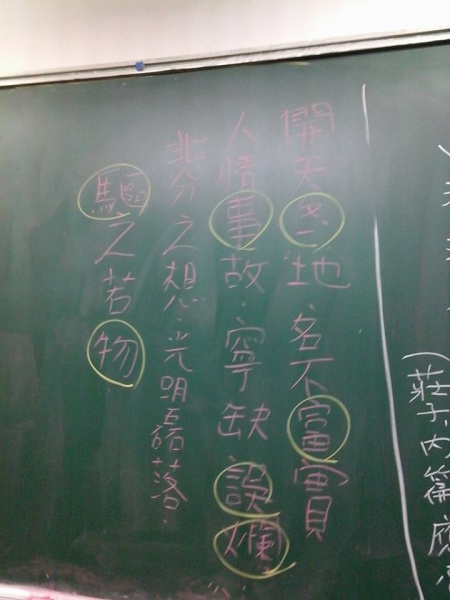 (莊子,內篇應
開天冬地.名不富實
人情事故.寧缺誤爛
非分之想.光明磊落.
驅之若物